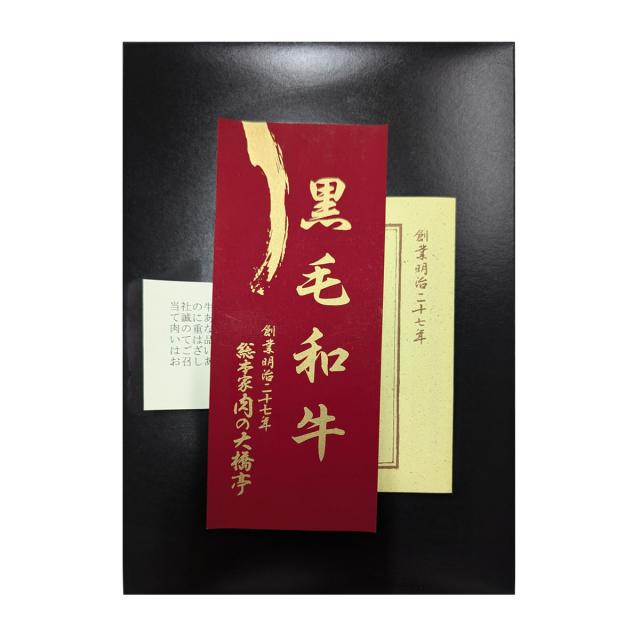 黒毛和牛
創業明治二十七年
総本家肉の大橋亭
創業明治二十七年
当社の牛
て誠にあ
肉の重な
いては品
はござい
お召しあ